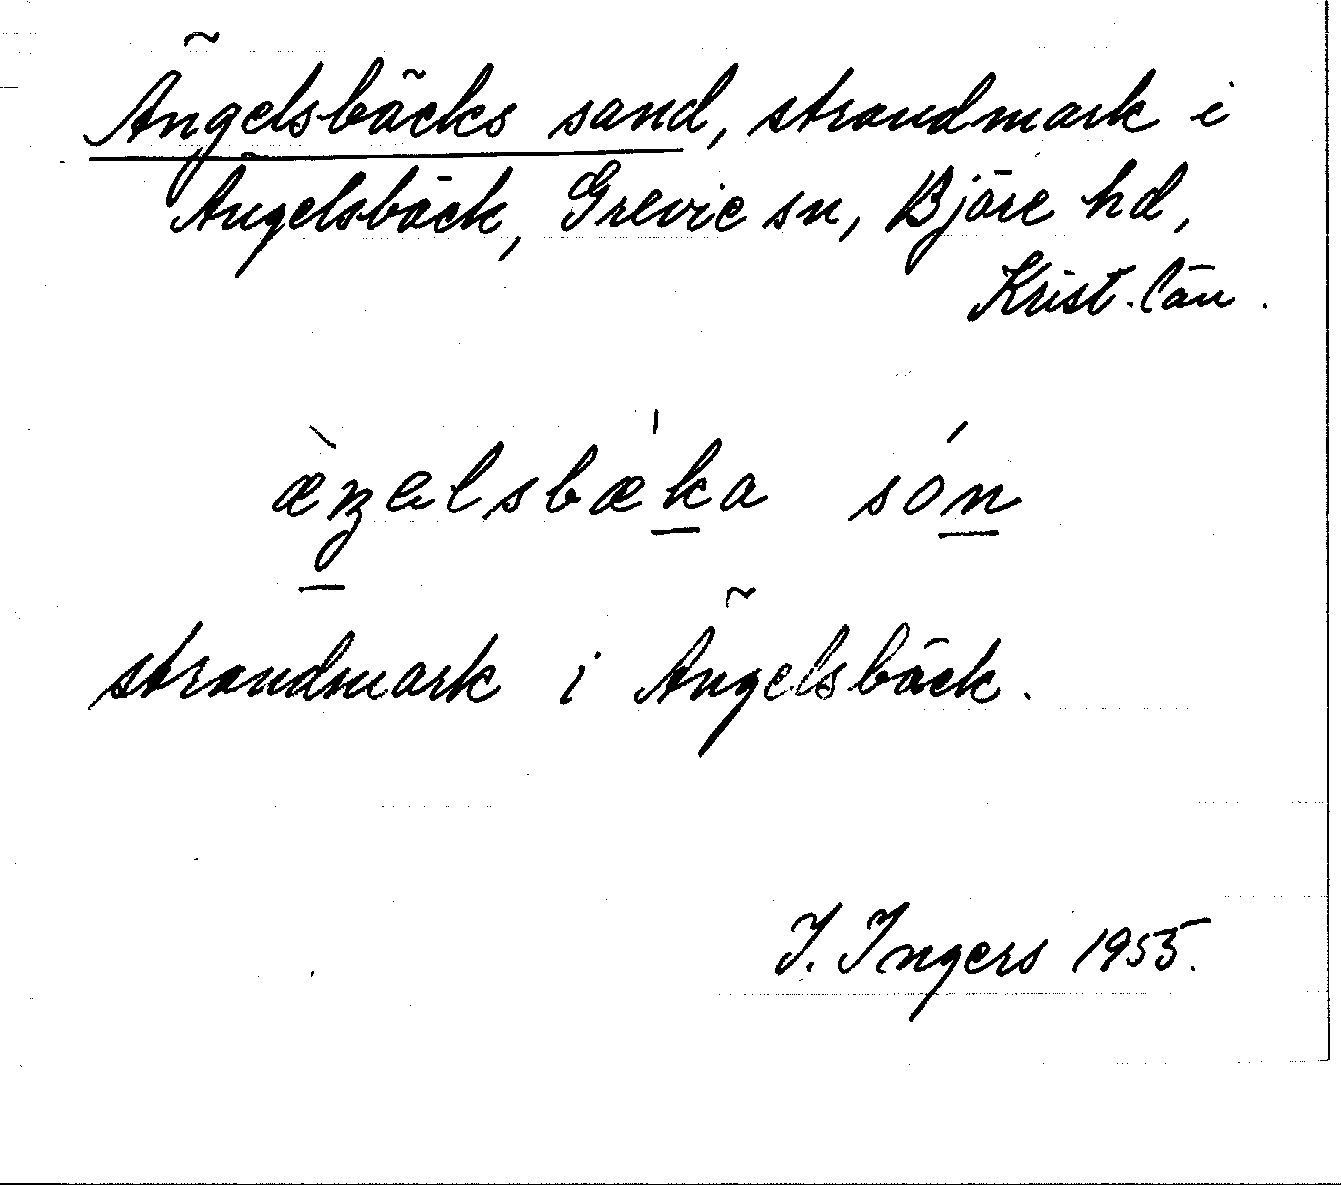 Ängelsbäcks sand, strandmark i
Ängelsbäck, Grevie sn, Bjäre hd,
Krist. län.
æ̀ŋelsbæ̍ka són
strandmark i Ängelsbäck.
I. Ingers 1955.